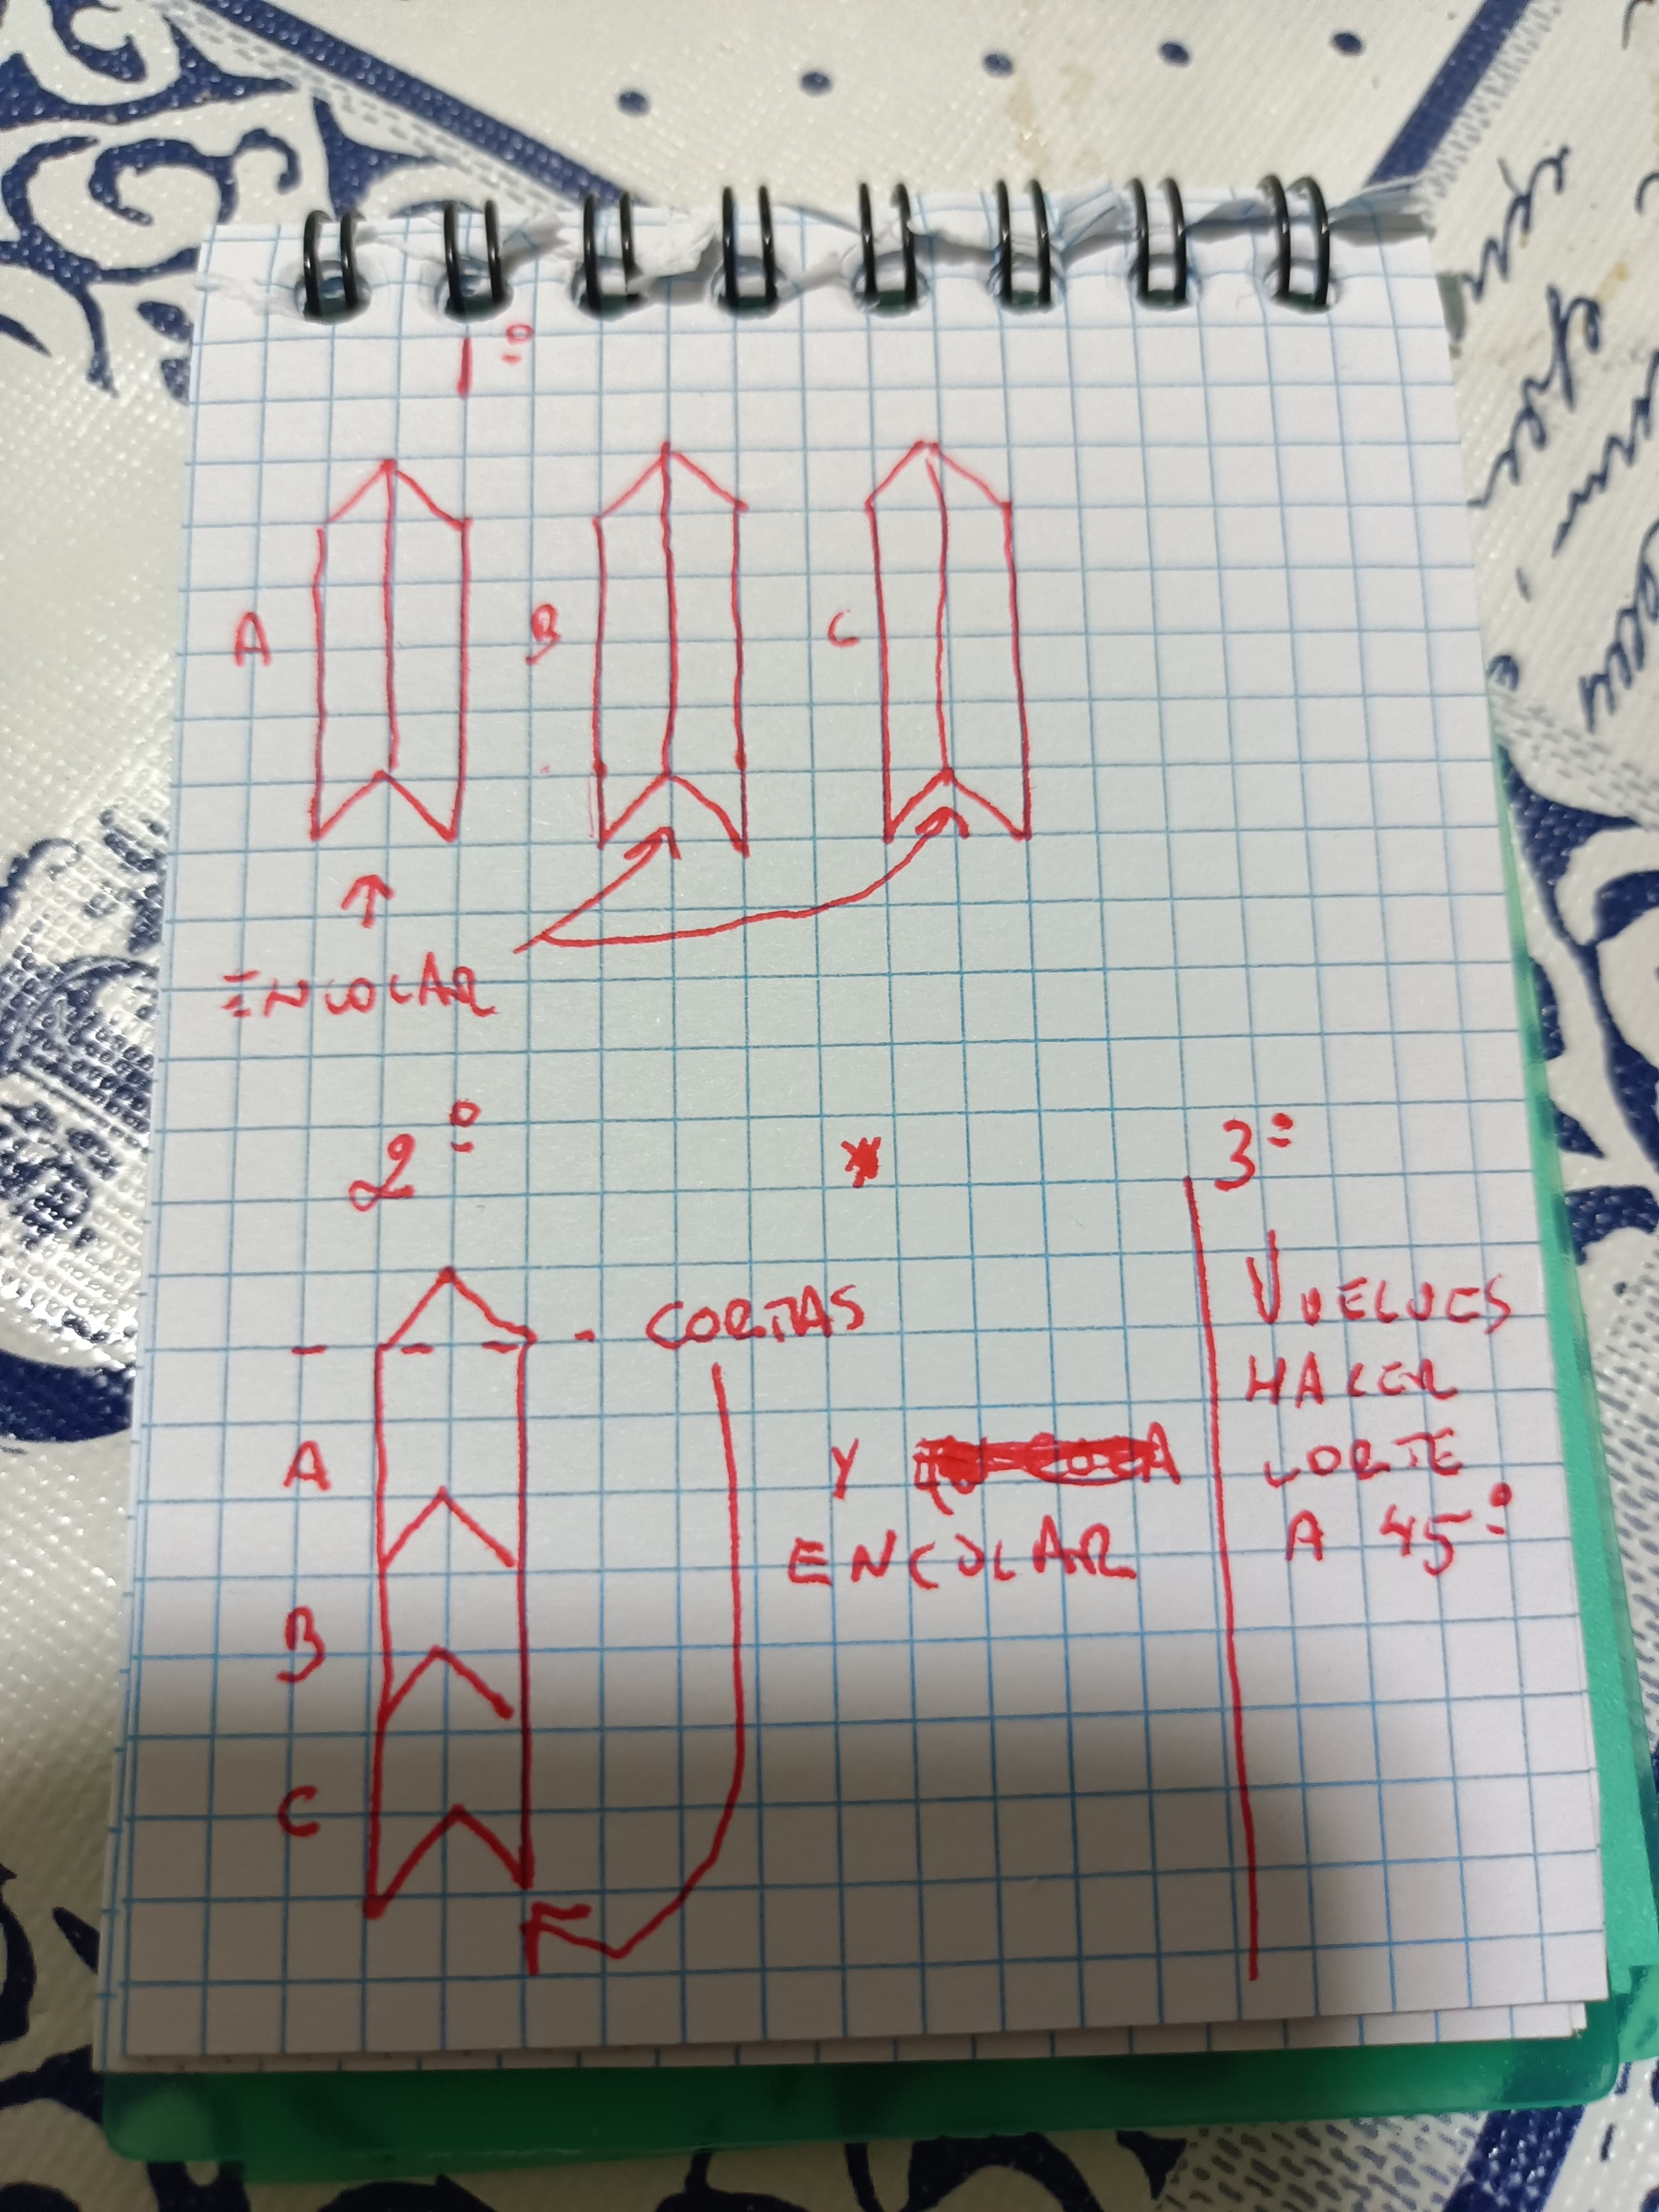 1º
A
B
C
ENCOLAR
2º
*
CORTAS
Y
ENCOLAR
A
B
C
3º
VUELVES
HACER
CORTE
A 45º